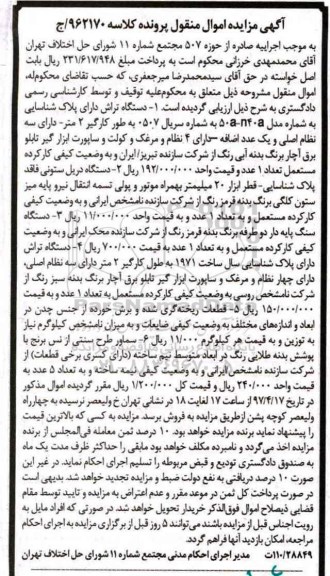 آگهی مزایده اموال منقول پرونده کلاسه ۹۶۲۱۷۰/ج
به موجب اجراییه صادره از حوزه ۵۰۷ مجتمع شماره ۱۱ شورای حل اختلاف تهران
آقای محمدمهدی خرزانی محکوم است به پرداخت مبلغ ۲۳۱/۶۱۷/۹۴۸ ریال بابت
اصل خواسته در حق آقای سیدمحمدرضا میرجعفری، که حسب تقاضای محکوم‌له،
اموال منقول مشروحه ذیل متعلق به محکوم‌علیه توقیف و توسط کارشناس رسمی
دادگستری به شرح ذیل ارزیابی گردیده است. ۱- دستگاه تراش دارای پلاک شناسایی
به شماره مدل ۵۰a-n۴۰a به شماره سریال ۰۵۰۷ به طور کارگیر ۲ متر- دارای سه
نظام اصلی و یک عدد اضافه –دارای ۴ نظام و مرغک و کولت و ساپورت ابزار گیر تابلو
برق آچار برنگ بدنه آبی رنگ از شرکت سازنده تبریز/ ایران و به وضعیت کیفی کارکرده
مستعمل تعداد ۱ عدد و به قیمت واحد ۱۹۲/۰۰۰/۰۰۰ ریال ۲- دستگاه دریل ستونی فاقد
پلاک شناسایی- قطر ابزار ۲۰ میلیمتر بهمراه موتور و پولی تسمه انتقال نیرو پایه میز
ستون گلگی برنگ بدنه قرمز رنگ از شرکت سازنده نامشخص ایرانی و به وضعیت کیفی
کارکرده مستعمل و به تعداد ۱ عدد و به قیمت واحد ۱۱/۰۰۰/۰۰۰ ریال ۳- دستگاه
سنگ پایه دار دو طرفه برنگ بدنه قرمز رنگ از شرکت سازنده محک ایرانی و به وضعیت
کیفی کارکرده مستعمل و به تعداد ۱ عدد به قیمت ۷۰۰/۰۰۰ ریال ۴- دستگاه تراش
دارای پلاک شناسایی سال ساخت ۱۹۷۱ به طول کارگیر ۲ متر دارای سه نظام اصلی،
دارای چهار نظام و مرغک و ساپورت ابزار گیر تابلو برق آچار برنگ بدنه سبز رنگ از
شرکت نامشخص روسی به وضعیت کیفی کارکرده مستعمل به تعداد ۱ عدد و به قیمت
۱۵۰/۰۰۰/۰۰۰ ریال ۵- قطعات ریخته‌گری شده و برش خورده از جنس چدن در
ابعاد و اندازه‌های مختلف به وضعیت کیفی ضایعات و به میزان نامشخص کیلوگرم نیاز
به توزین و به قیمت هر کیلوگرم ۱۱/۰۰۰ ریال ۶- سماور طرح سنتی از نس برنج با
پوشش بدنه طلایی رنگ در ابعاد متوسط نیم ساخته (دارای کسری برخی قطعات) از
شرکت سازنده نامشخص ایرانی و به وضعیت کیفی نیمه ساخته و به تعداد ۵ عدد به
قیمت واحد ۲۴۰/۰۰۰ ریال و قیمت کل ۱/۲۰۰/۰۰۰ ریال مقرر گردیده اموال مذکور
در تاریخ ۹۷/۴/۱۷ از ساعت ۱۷ لغایت ۱۸ در نشانی تهران خ ولیعصر نرسیده به چهارراه
ولیعصر کوچه پشن از طریق مزایده به فروش برسد. مزایده به کسی که بالاترین قیمت
را پیشنهاد نماید برنده مزایده خواهد بود. ۱۰ درصد ثمن معامله فی‌المجلس از برنده
مزایده اخذ می‌گردد و نامبرده مکلف خواهد بود مابقی را حداکثر ظرف مدت یک ماه
به صندوق دادگستری تودیع و قبض مربوطه را تسلیم اجرای احکام نماید. در غیر این
صورت ۱۰ درصد دریافتی به نفع دولت ضبط و مزایده تجدید خواهد شد. بدیهی است
در صورت پرداخت کل ثمن در موعد مقرر و عدم اعتراض به مزایده و تایید توسط مقام
قضایی ذیصلاح اموال فوق‌الذکر خریدار تحویل خواهد شد. در صورتی که افراد مایل به
رویت اجناس قبل از مزایده باشند می‌توانند ۵ روز قبل از برگزاری مزایده به اجرای احکام
مراجعه، امکان بازدید آنها فراهم گردد.
۱۱۰/۲۸۸۴۹ت مدیر اجرای احکام مدنی مجتمع شماره ۱۱ شورای حل اختلاف تهران